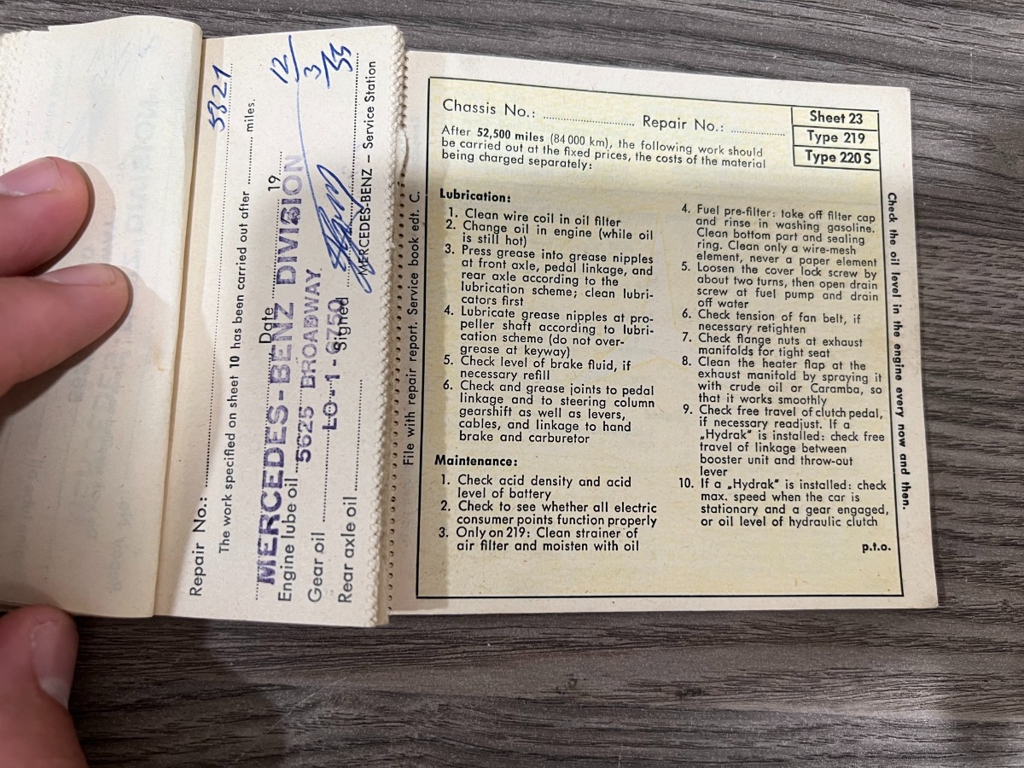 Repair No.:
5821
The work specified on sheet 10 has been carried out after miles.
Date 19
12/3/55
MERCEDES-BENZ DIVISION
Engine lube oil
5625 BROADWAY
Gear oil
LO-1-6750
Signed
Rear axle oil
MERCEDES-BENZ – Service Station
File with repair report. Service book edt. C.
Chassis No.: Repair No.:
Sheet 23
Type 219
Type 220 S
After 52,500 miles (84 000 km), the following work should
be carried out at the fixed prices, the costs of the material
being charged separately:
Lubrication:
1. Clean wire coil in oil filter
2. Change oil in engine (while oil
is still hot)
3. Press grease into grease nipples
at front axle, pedal linkage, and
rear axle according to the
lubrication scheme; clean lubri-
cators first
4. Lubricate grease nipples at pro-
peller shaft according to lubri-
cation scheme (do not over-
grease at keyway)
5. Check level of brake fluid, if
necessary refill
6. Check and grease joints to pedal
linkage and to steering column
gearshift as well as levers,
cables, and linkage to hand
brake and carburetor
Maintenance:
1. Check acid density and acid
level of battery
2. Check to see whether all electric
consumer points function properly
3. Only on 219: Clean strainer of
air filter and moisten with oil
4. Fuel pre-filter: take off filter cap
and rinse in washing gasoline.
Clean bottom part and sealing
ring. Clean only a wire-mesh
element, never a paper element
5. Loosen the cover lock screw by
about two turns, then open drain
screw at fuel pump and drain
off water
6. Check tension of fan belt, if
necessary retighten
7. Check flange nuts at exhaust
manifolds for tight seat
8. Clean the heater flap at the
exhaust manifold by spraying it
with crude oil or Caramba, so
that it works smoothly
9. Check free travel of clutch pedal,
if necessary readjust. If a
„Hydrak" is installed: check free
travel of linkage between
booster unit and throw-out
lever
10. If a „Hydrak" is installed: check
max. speed when the car is
stationary and a gear engaged,
or oil level of hydraulic clutch
p.t.o.
Check the oil level in the engine every now and then.